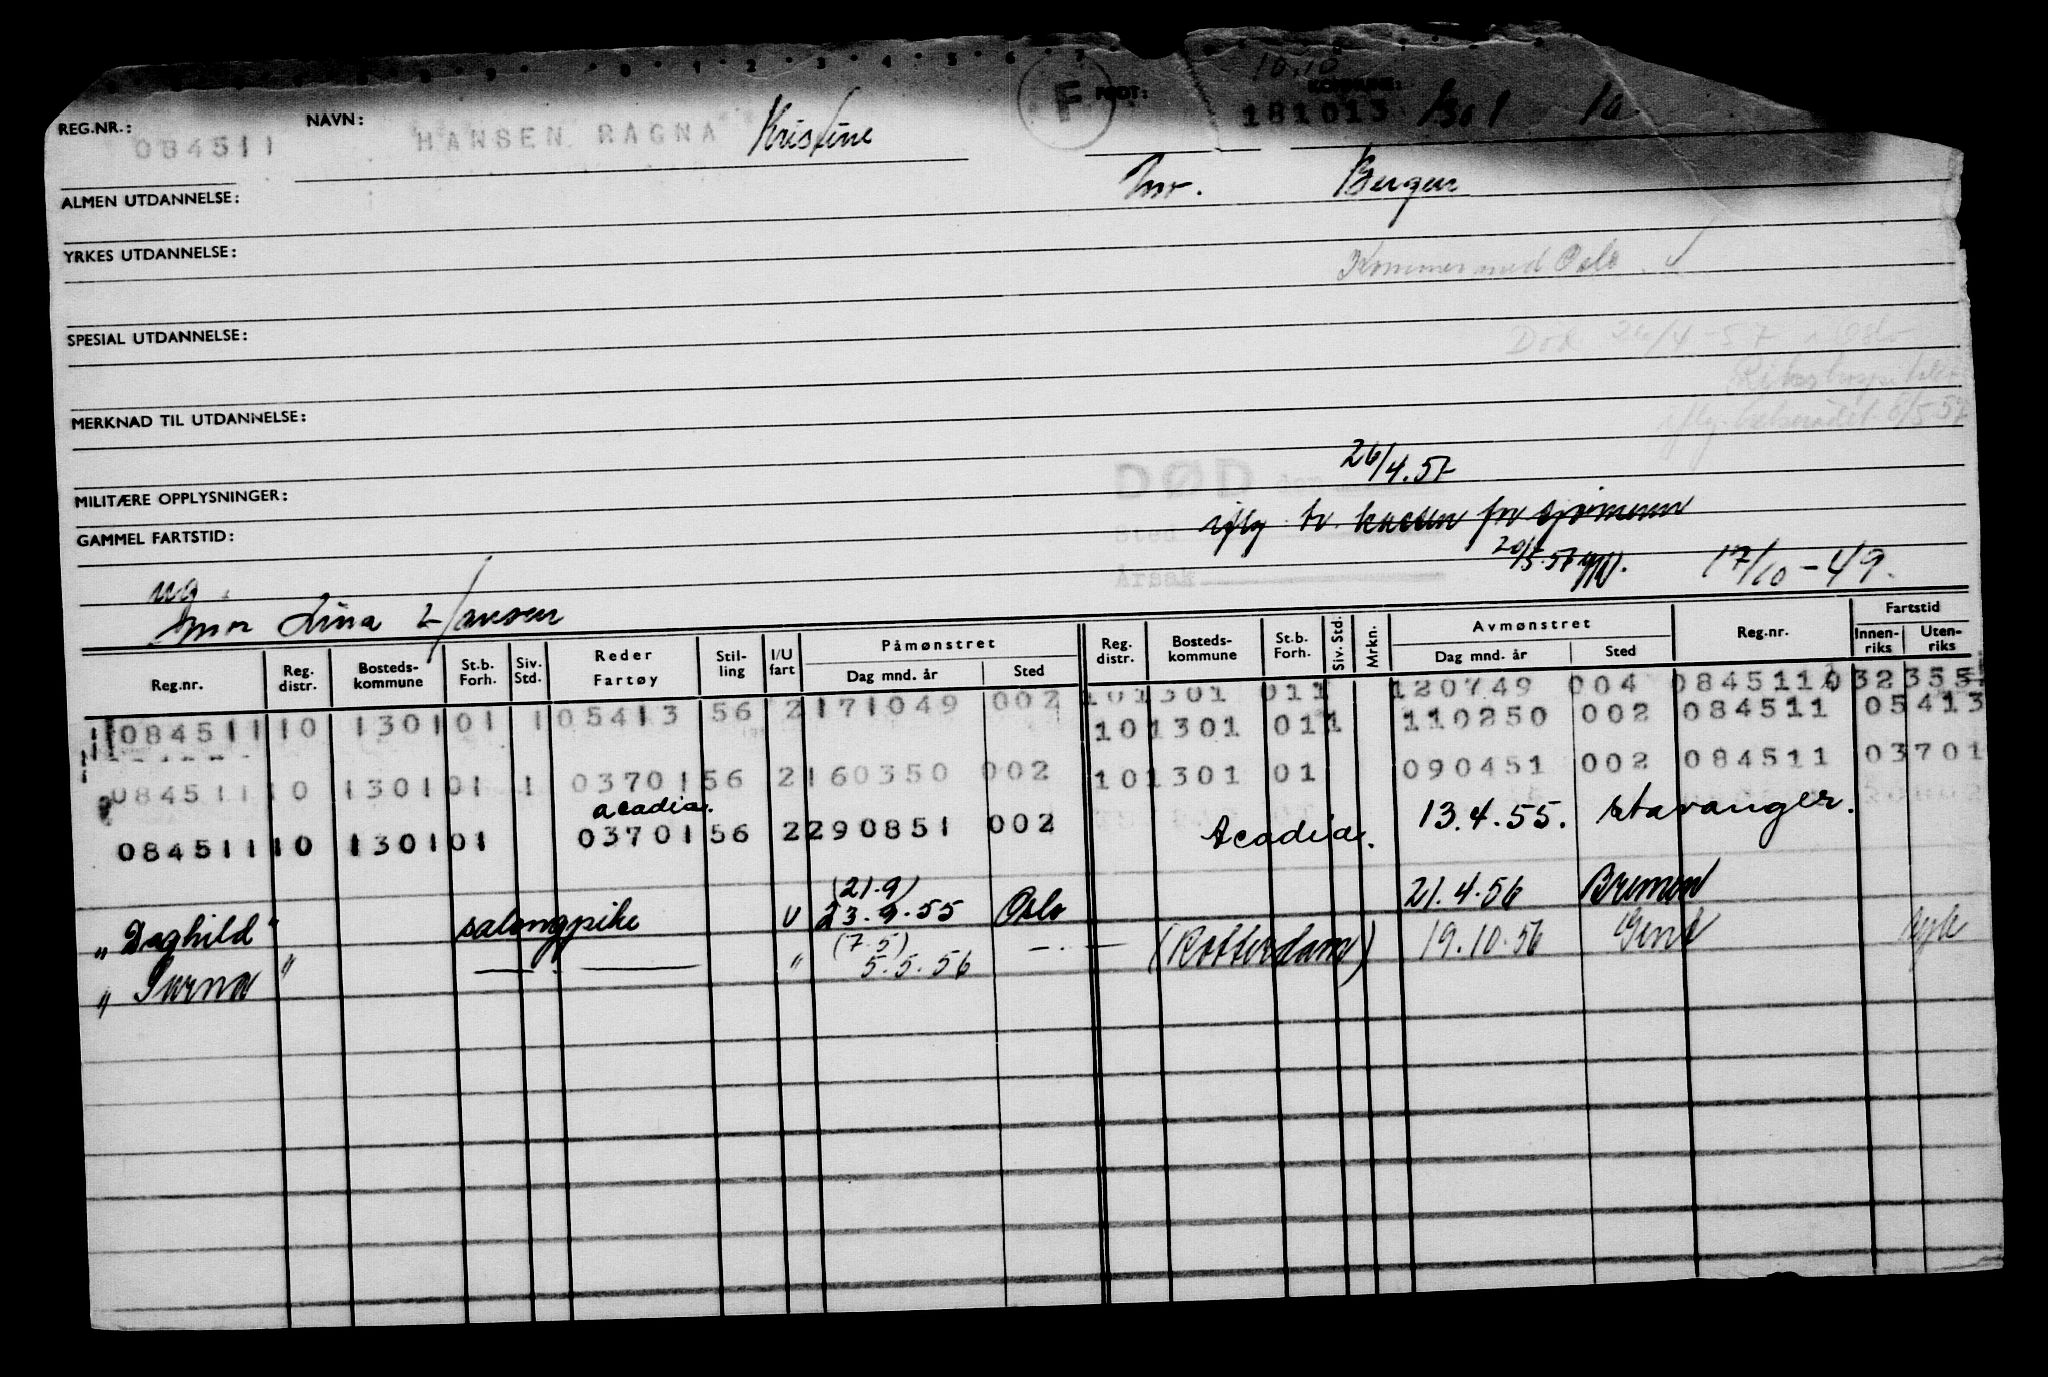 10.10
REG.NR.: 084511 NAVN: HANSEN RAGNA Kristine F FØDT: 181013 1301 10
nor. Bergen
ALMEN UTDANNELSE:
YRKES UTDANNELSE:
Kommer med Oslo
SPESIAL UTDANNELSE:
Død 26/4-57 i Oslo
Rikshospitalet
MERKNAD TIL UTDANNELSE:
iflg. 6/5 57
26/4.57
MILITÆRE OPPLYSNINGER: DØD den
iflg. br. kassen for sjømenn
GAMMEL FARTSTID: Sted
20/5.57 17/10-49.
Årsak
ug.
mor Lina Hansen
Påmønstret Avmønstret Fartstid
Reg.nr. Reg. distr. Bosteds-kommune St.b. Forh. Siv. Std. Reder Fartøy Stil-ling I/U fart Dag mnd. år Sted Reg. distr. Bosteds-kommune St.b. Forh. Siv. Std. Mrkn. Dag mnd. år Sted Reg.nr. Innen-riks Uten-riks
101301 011 120749 004 0845110 32355
084511 10 1301 01 1 05413 56 2 171049 002 101301 011 110250 002 084511 05413
084511 10 1301 01 1 03701 56 2 160350 002 101301 01 090451 002 084511 03701
acadia.
084511 10 1301 01 03701 56 2 290851 002 Acadia. 13.4.55. Stavanger.
(21.9)
„ Daghild " salongpike U 23.9.55 Oslo 21.4.56 Bremen
(7.5)
„ Surna " — . — " 5.5.56 — . — (Rotterdam) 19.10.56 Gent syk